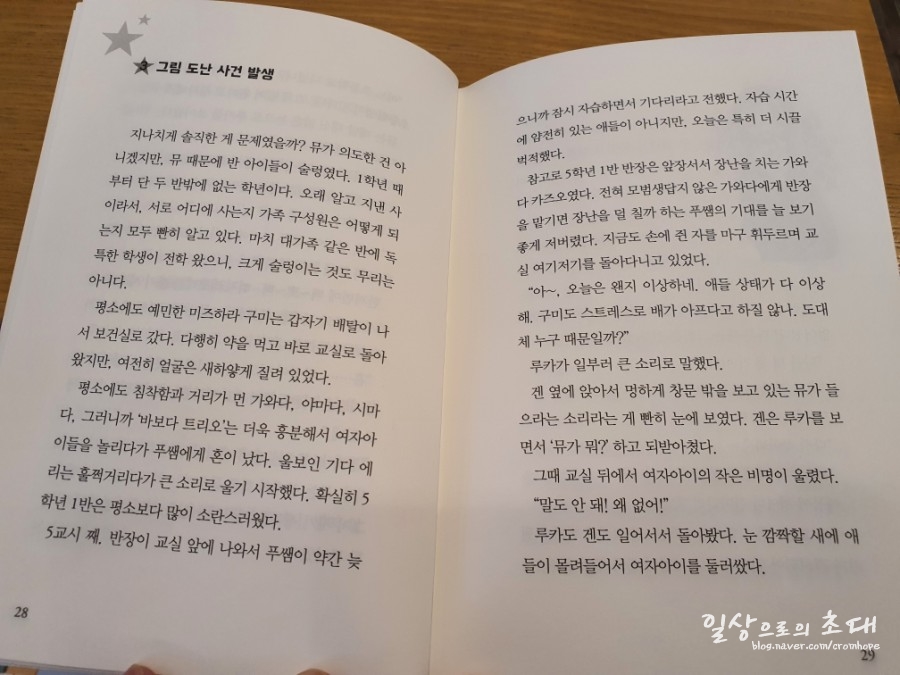 3 그림 도난 사건 발생
지나치게 솔직한 게 문제였을까? 뮤가 의도한 건 아
니겠지만, 뮤 때문에 반 아이들이 술렁였다. 1학년 때
부터 단 두 반밖에 없는 학년이다. 오래 알고 지낸 사
이라서, 서로 어디에 사는지 가족 구성원은 어떻게 되
는지 모두 빤히 알고 있다. 마치 대가족 같은 반에 독
특한 학생이 전학 왔으니, 크게 술렁이는 것도 무리는
아니다.
평소에도 예민한 미즈하라 구미는 갑자기 배탈이 나
서 보건실로 갔다. 다행히 약을 먹고 바로 교실로 돌아
왔지만, 여전히 얼굴은 새하얗게 질려 있었다.
평소에도 침착함과 거리가 먼 가와다, 야마다, 시마
다, 그러니까 ‘바보다 트리오’는 더욱 흥분해서 여자아
이들을 놀리다가 푸쌤에게 혼이 났다. 울보인 기다 에
리는 훌쩍거리다가 큰 소리로 울기 시작했다. 확실히 5
학년 1반은 평소보다 많이 소란스러웠다.
5교시 째. 반장이 교실 앞에 나와서 푸쌤이 약간 늦
28
으니까 잠시 자습하면서 기다리라고 전했다. 자습 시간
에 얌전히 있는 애들이 아니지만, 오늘은 특히 더 시끌
벅적했다.
참고로 5학년 1반 반장은 앞장서서 장난을 치는 가와
다 카즈오였다. 전혀 모범생답지 않은 가와다에게 반장
을 맡기면 장난을 덜 칠까 하는 푸쌤의 기대를 늘 보기
좋게 저버렸다. 지금도 손에 쥔 자를 마구 휘두르며 교
실 여기저기를 돌아다니고 있었다.
“아~, 오늘은 왠지 이상하네. 애들 상태가 다 이상
해. 구미도 스트레스로 배가 아프다고 하질 않나. 도대
체 누구 때문일까?”
루카가 일부러 큰 소리로 말했다.
겐 옆에 앉아서 멍하게 창문 밖을 보고 있는 뮤가 들
으라는 소리라는 게 빤히 눈에 보였다. 겐은 루카를 보
면서 ‘뮤가 뭐?’ 하고 되받아쳤다.
그때 교실 뒤에서 여자아이의 작은 비명이 울렸다.
“말도 안 돼! 왜 없어!”
루카도 겐도 일어서서 돌아봤다. 눈 깜짝할 새에 애
들이 몰려들어서 여자아이를 둘러쌌다.
29
일상으로의 초대
blog.naver.com/cromhope